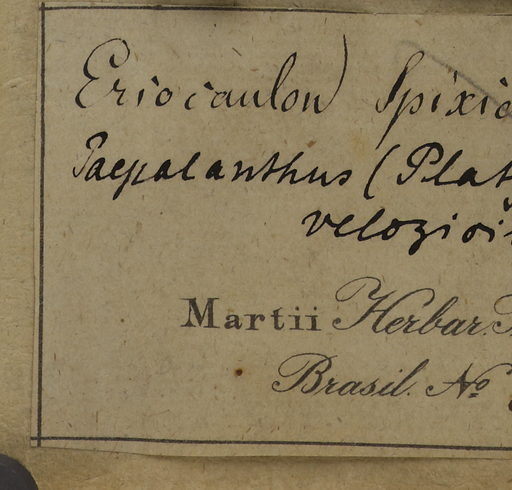 Eriocaulon Spixia
Paepalanthus (Platy
velozioi
Martii Herbar.
Brasil. No